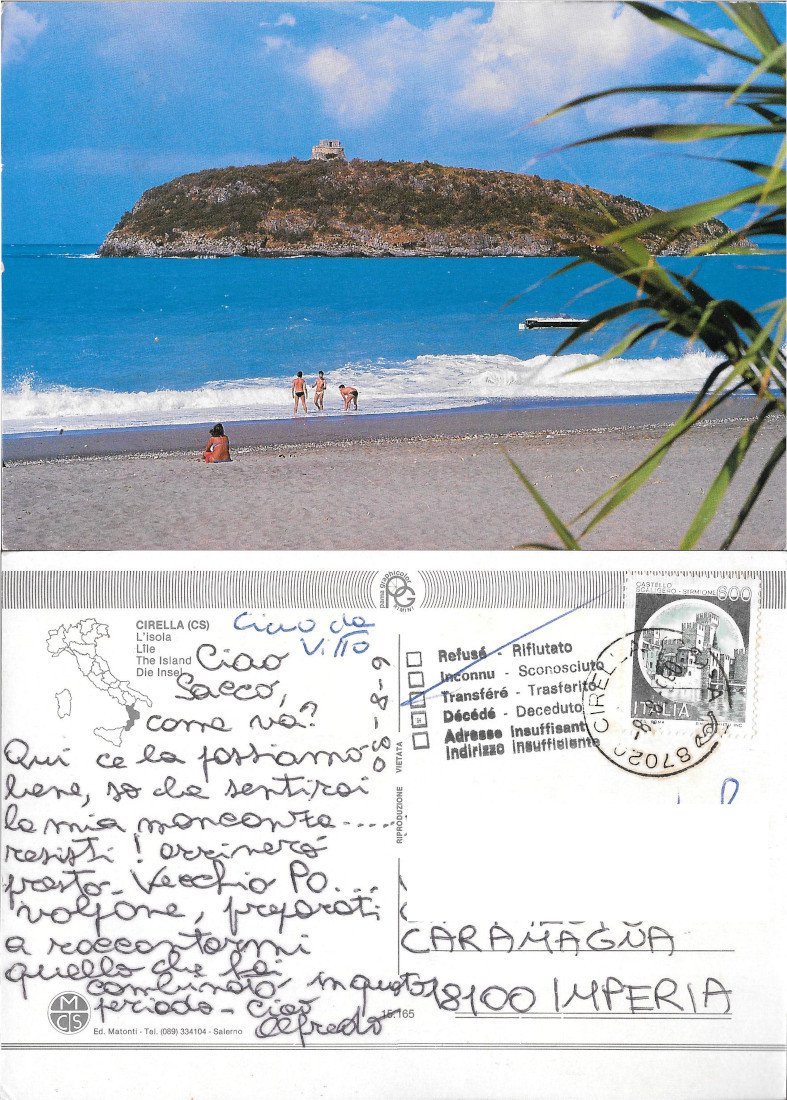 CIRELLA (CS)
L'isola
L'île
The Island
Die Insel
Ciao da
Vitto
Ciao
Sacco,
come va?
Qui ce la passiamo
bene, so che sentirai
la mia mancanza ....
resisti! arriverò
presto - Vecchio Po ...
volpone, preparati
a raccontarmi
quello che hai
combinato in questo
periodo - Ciao
Alfredo
8-9-90
MCS
Ed. Matonti - Tel. (089) 334104 - Salerno
15.165
RIPRODUZIONE VIETATA
pama graphicolor
PG
RIMINI
Refusé - Rifiutato
Inconnu - Sconosciuto
Transféré - Trasferito
Décédé - Deceduto
Adresse Insuffisant
Indirizzo Insufficiente
CASTELLO
SCALIGERO - SIRMIONE
600
ITALIA
87020 CIREL
CARAMAGNA
18100 IMPERIA